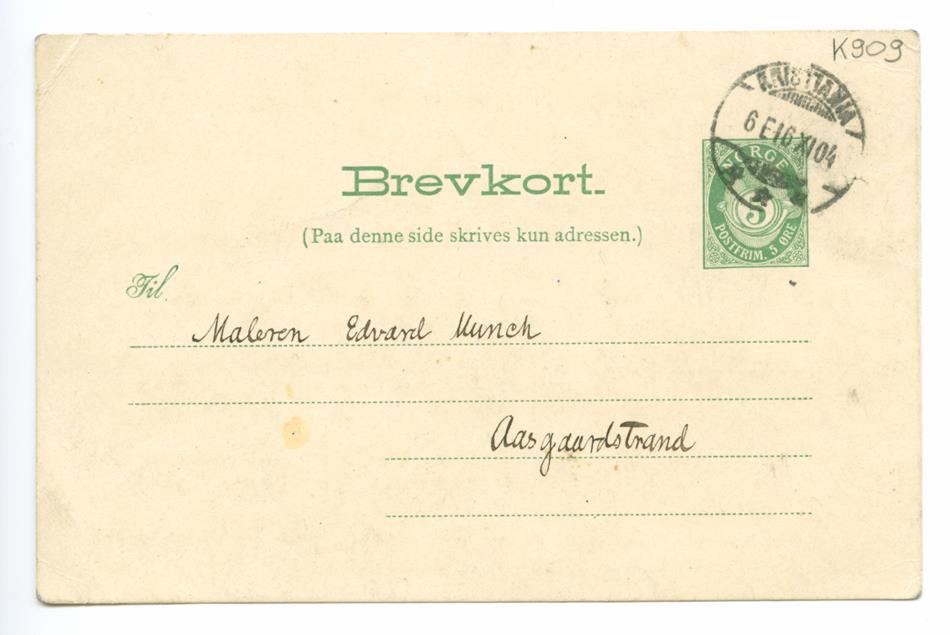 K909
KRISTIANIA
6 E 16 XI 04
NORGE
5
POSTFRIM. 5 ØRE
Brevkort.
(Paa denne side skrives kun adressen.)
Til
Maleren Edvard Munch
Aasgaardstrand